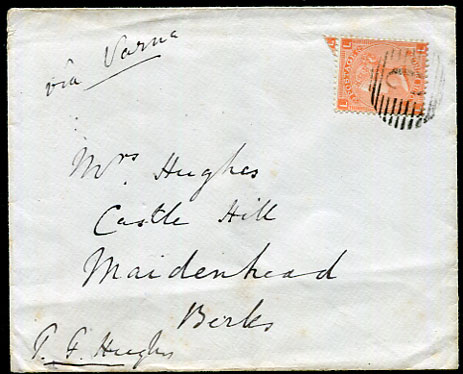 via Varna
Mrs Hughes
Castle Hill
Maidenhead
Berks
T. F. Hughes